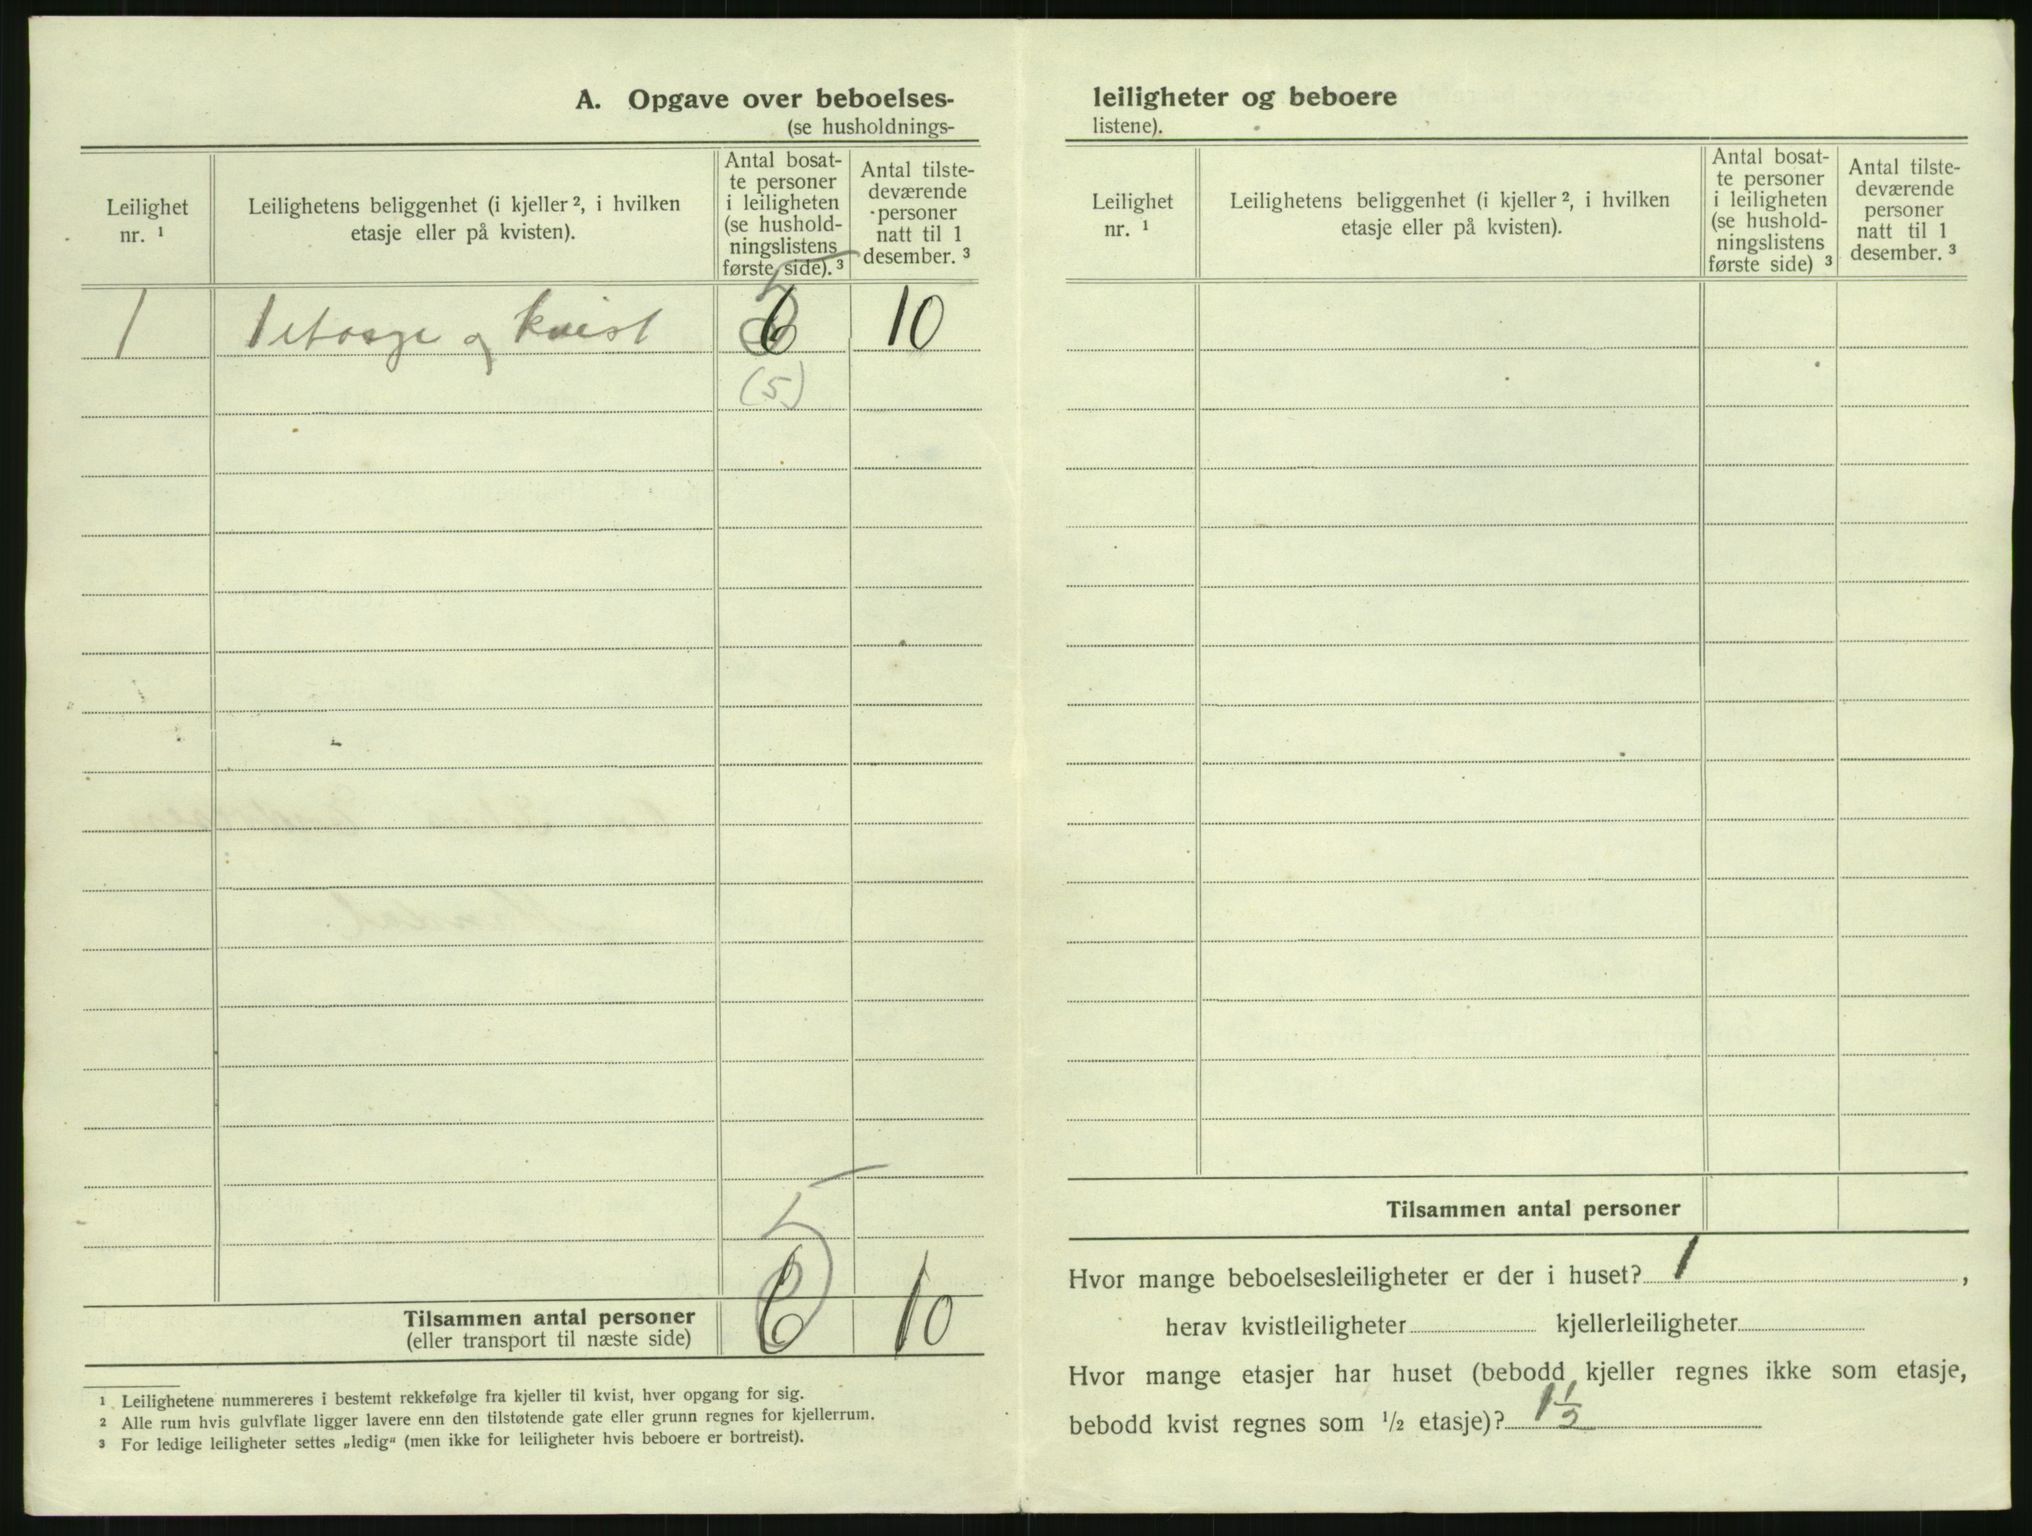 A. Opgave over beboelses-
(se husholdnings-
Leilighet
nr. ¹
Leilighetens beliggenhet (i kjeller ², i hvilken
etasje eller på kvisten).
Antal bosat-
te personer
i leiligheten
(se hushold-
ningslistens
første side). ³
Antal tilste-
deværende
personer
natt til 1
desember. ³
1 1 etasge og kvist 5 6 10
(5)
Tilsammen antal personer 5 6 10
(eller transport til næste side)
¹ Leilighetene nummereres i bestemt rekkefølge fra kjeller til kvist, hver opgang for sig.
² Alle rum hvis gulvflate ligger lavere enn den tilstøtende gate eller grunn regnes for kjellerrum.
³ For ledige leiligheter settes „ledig“ (men ikke for leiligheter hvis beboere er bortreist).
leiligheter og beboere
listene).
Leilighet
nr. ¹
Leilighetens beliggenhet (i kjeller ², i hvilken
etasje eller på kvisten).
Antal bosat-
te personer
i leiligheten
(se hushold-
ningslistens
første side) ³
Antal tilste-
deværende
personer
natt til 1
desember. ³
Tilsammen antal personer
Hvor mange beboelsesleiligheter er der i huset? 1 ,
herav kvistleiligheter kjellerleiligheter
Hvor mange etasjer har huset (bebodd kjeller regnes ikke som etasje,
bebodd kvist regnes som ¹/₂ etasje)? 1 ½